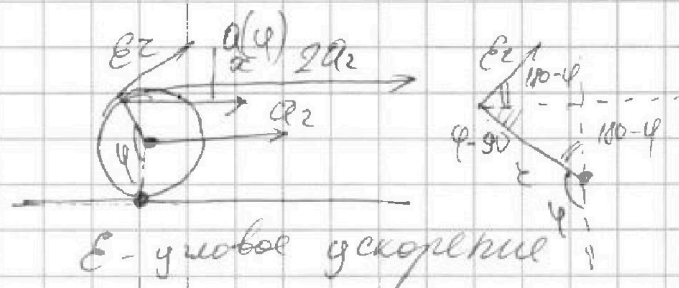 εr a(φ) 2a₂ εr 180-φ
x
a₂
φ φ-90 180-φ
r
φ
ε - угловое ускорение